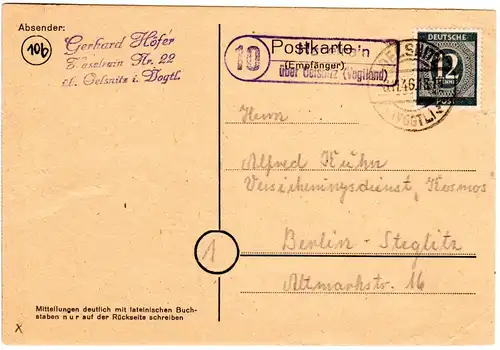 Absender:
10b
Gerhard Höfer
Haselrain Nr. 22
Oelsnitz i. Vogtl.
10
Postkarte
(Empfänger)
über Oelsnitz (Vogtland)
OELSNITZ
(VOGTL)
DEUTSCHE
12
PFENNIG
POST
Herrn
Alfred Kuhn
Versicherungsdienst „Kosmos"
1
Berlin-Steglitz
Altmarkstr. 16
Mitteilungen deutlich mit lateinischen Buch-
staben nur auf der Rückseite schreiben
x